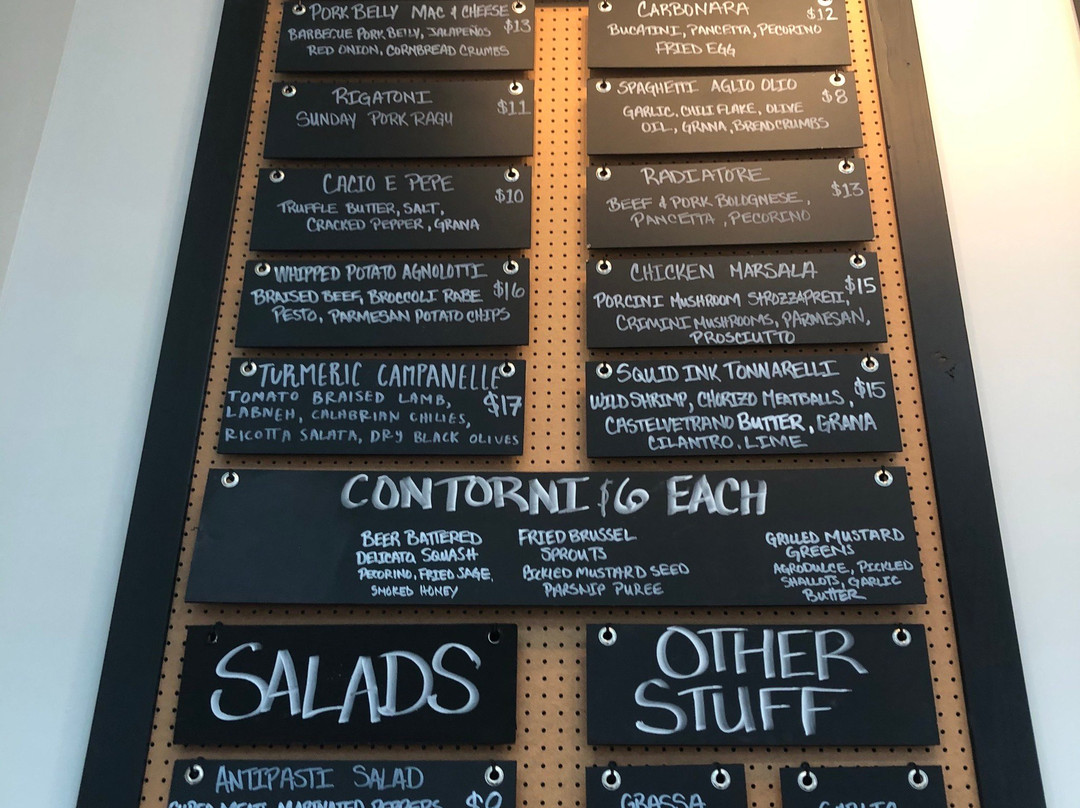 PORK BELLY MAC & CHEESE
$13
BARBECUE PORK BELLY, JALAPEÑOS
RED ONION, CORNBREAD CRUMBS
CARBONARA
$12
BUCATINI, PANCETTA, PECORINO
FRIED EGG
RIGATONI
$11
SUNDAY PORK RAGU
SPAGHETTI AGLIO OLIO
$8
GARLIC, CHILI FLAKE, OLIVE
OIL, GRANA, BREADCRUMBS
CACIO E PEPE
$10
TRUFFLE BUTTER, SALT,
CRACKED PEPPER, GRANA
RADIATORE
$13
BEEF & PORK BOLOGNESE,
PANCETTA, PECORINO
WHIPPED POTATO AGNOLOTTI
BRAISED BEEF, BROCCOLI RABE $16
PESTO, PARMESAN POTATO CHIPS
CHICKEN MARSALA
$15
PORCINI MUSHROOM STROZZAPRETI,
CRIMINI MUSHROOMS, PARMESAN,
PROSCIUTTO
TURMERIC CAMPANELLE
TOMATO BRAISED LAMB, $17
LABNEH, CALABRIAN CHILIES,
RICOTTA SALATA, DRY BLACK OLIVES
SQUID INK TONNARELLI
$15
WILD SHRIMP, CHORIZO MEATBALLS,
CASTELVETRANO BUTTER, GRANA
CILANTRO, LIME
CONTORNI $6 EACH
BEER BATTERED
DELICATA SQUASH
PECORINO, FRIED SAGE,
SMOKED HONEY
FRIED BRUSSEL
SPROUTS
PICKLED MUSTARD SEED
PARSNIP PUREE
GRILLED MUSTARD
GREENS
AGRODULCE, PICKLED
SHALLOTS, GARLIC
BUTTER
SALADS
OTHER
STUFF
ANTIPASTI SALAD
CURED MEAT, MARINATED PEPPERS
GRASSA